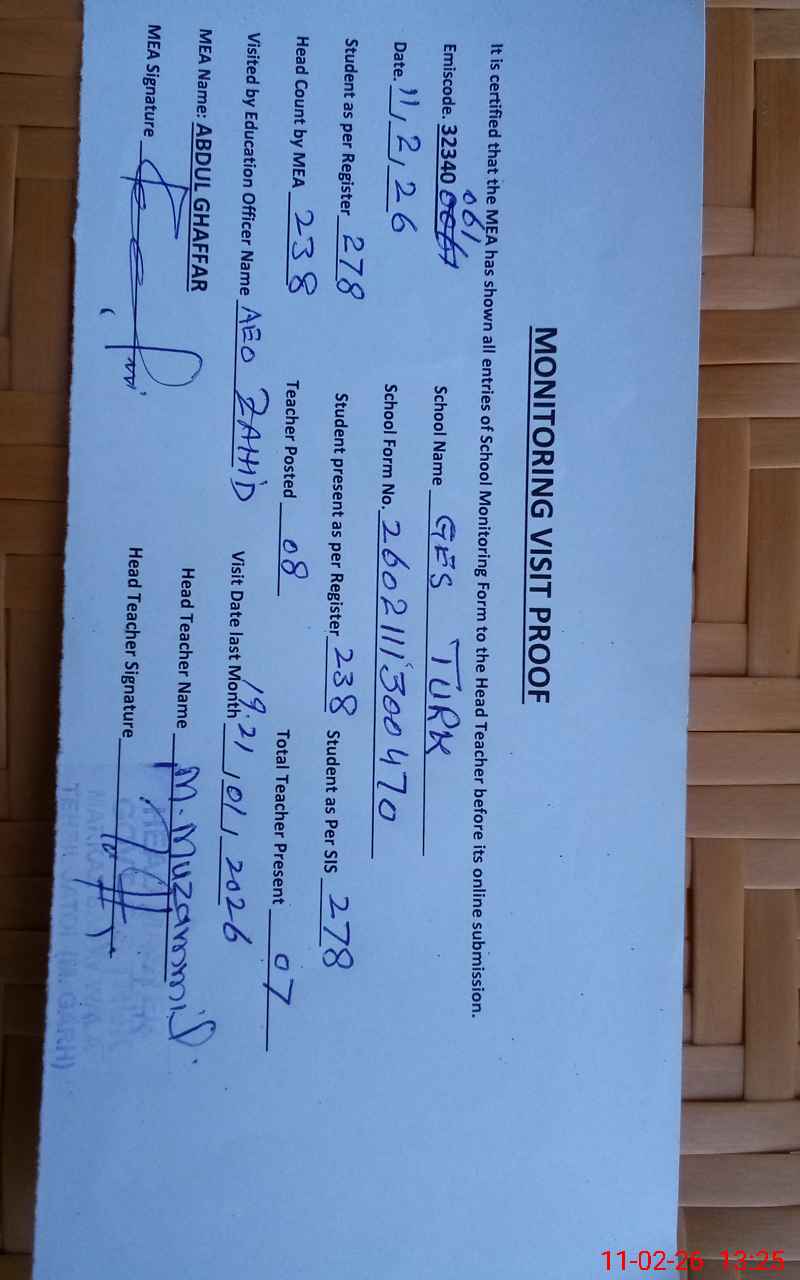 MONITORING VISIT PROOF
It is certified that the MEA has shown all entries of School Monitoring Form to the Head Teacher before its online submission.
Emiscode. 32340 061 School Name GES TURK
Date. 11, 2, 26 School Form No. 2602111300470
Student as per Register 278 Student present as per Register 238 Student as Per SIS 278
Head Count by MEA 238 Teacher Posted 08 Total Teacher Present 07
Visited by Education Officer Name AEO ZAHID Visit Date last Month 19.21, 01, 2026
MEA Name: ABDUL GHAFFAR Head Teacher Name M. Muzammil
MEA Signature Head Teacher Signature
TEHSIL JATOI (M. GARH)
11-02-26 13:25